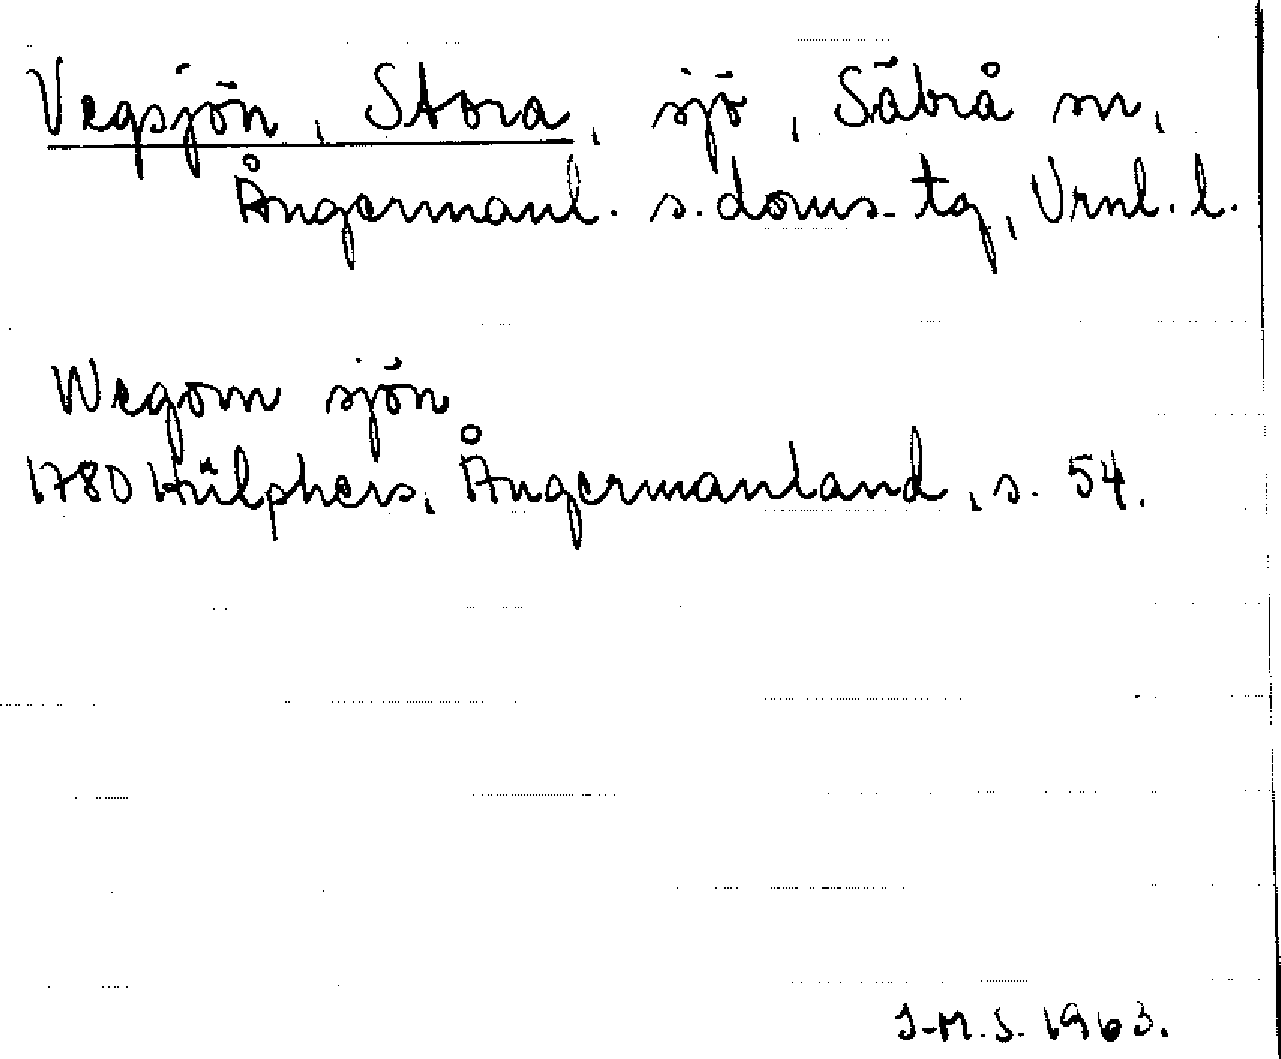 Vegsjön, Stora, sjö, Säbrå sn,
Ångermanl. s. doms. tg, Vrnl. l.
Wegom sjön
1780 Hülphers, Ångermanland, s. 54.
I-M.S. 1963.